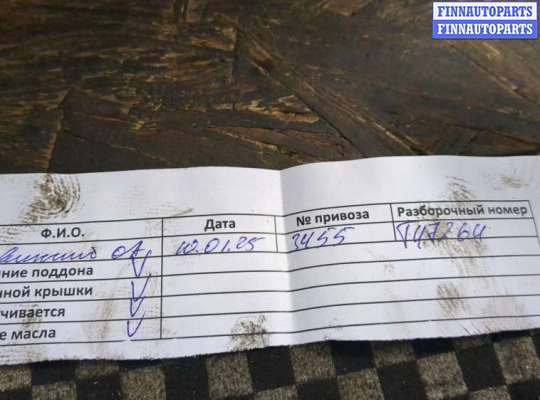 FINNAUTOPARTS
FINNAUTOPARTS
Ф.И.О. Дата № привоза Разборочный номер
10.01.25 3455
ние поддона
ной крышки
чивается
е масла